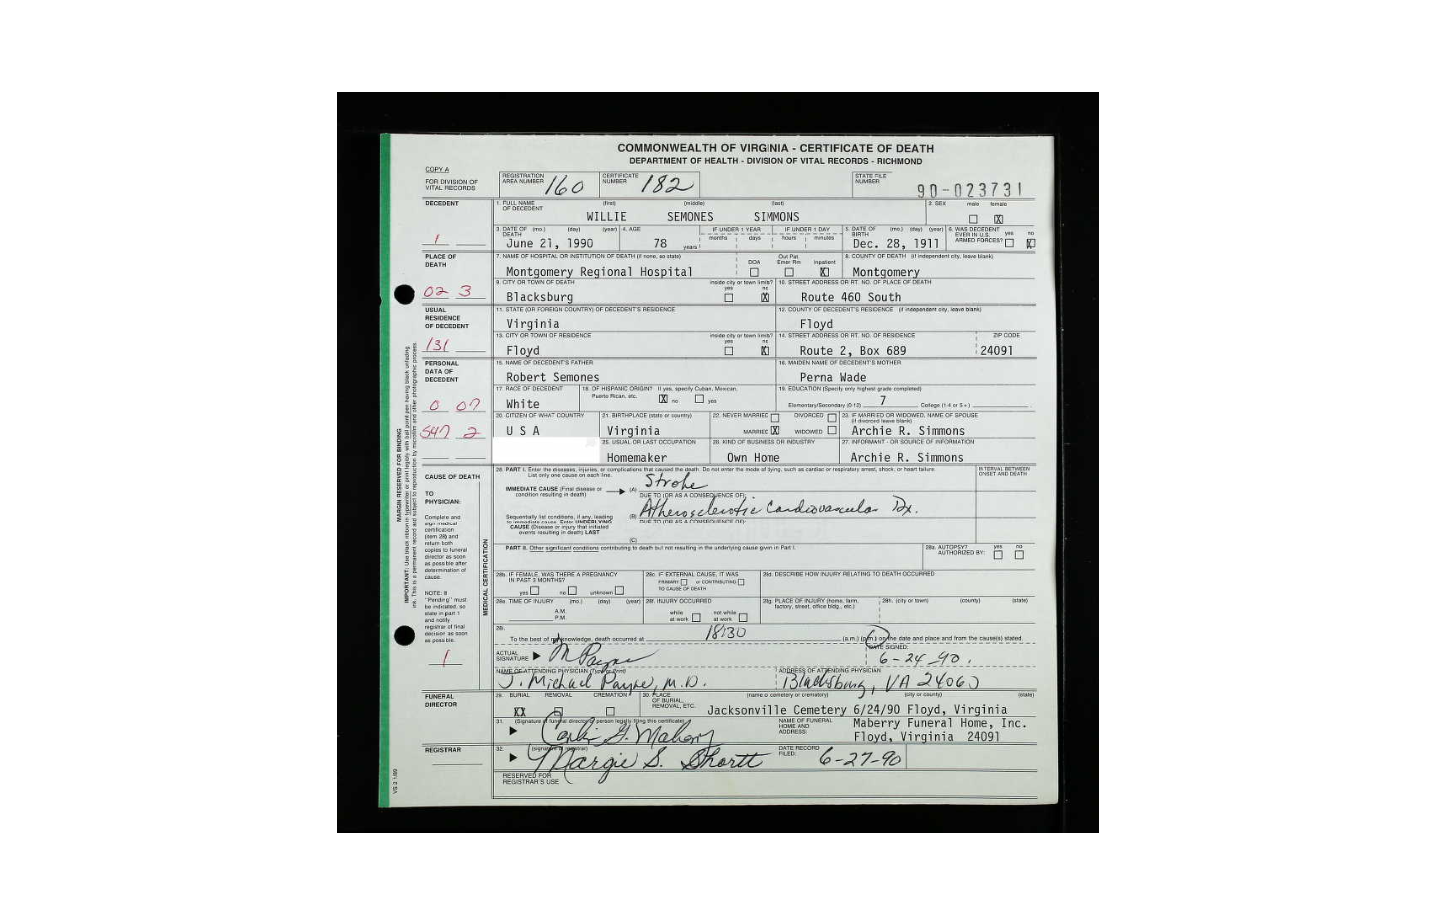 COMMONWEALTH OF VIRGINIA - CERTIFICATE OF DEATH
DEPARTMENT OF HEALTH - DIVISION OF VITAL RECORDS - RICHMOND
COPY A
FOR DIVISION OF VITAL RECORDS
REGISTRATION AREA NUMBER 160
CERTIFICATE NUMBER 182
STATE FILE NUMBER 90-023731
DECEDENT
1. FULL NAME OF DECEDENT (first) (middle) (last)
WILLIE SEMONES SIMMONS
2. SEX male female X
3. DATE OF DEATH (mo.) (day) (year) June 21, 1990
4. AGE 78 years
IF UNDER 1 YEAR months days
IF UNDER 1 DAY hours minutes
5. DATE OF BIRTH (mo.) (day) (year) Dec. 28, 1911
6. WAS DECEDENT EVER IN U.S. ARMED FORCES? yes no X
1
PLACE OF DEATH
7. NAME OF HOSPITAL OR INSTITUTION OF DEATH (if none, so state)
Montgomery Regional Hospital
DOA Out Pat. Emer Rm Inpatient X
8. COUNTY OF DEATH (if independent city, leave blank)
Montgomery
02 3
9. CITY OR TOWN OF DEATH
Blacksburg
inside city or town limits? yes no X
10. STREET ADDRESS OR RT. NO. OF PLACE OF DEATH
Route 460 South
USUAL RESIDENCE OF DECEDENT
11. STATE (OR FOREIGN COUNTRY) OF DECEDENT'S RESIDENCE
Virginia
12. COUNTY OF DECEDENT'S RESIDENCE (if independent city, leave blank)
Floyd
131
13. CITY OR TOWN OF RESIDENCE
Floyd
inside city or town limits? yes no X
14. STREET ADDRESS OR RT. NO. OF RESIDENCE
Route 2, Box 689
ZIP CODE
24091
PERSONAL DATA OF DECEDENT
15. NAME OF DECEDENT'S FATHER
Robert Semones
16. MAIDEN NAME OF DECEDENT'S MOTHER
Perna Wade
17. RACE OF DECEDENT
White
18. OF HISPANIC ORIGIN? If yes, specify Cuban, Mexican, Puerto Rican, etc. X no yes
19. EDUCATION (Specify only highest grade completed)
Elementary/Secondary (0-12) 7 College (1-4 or 5+)
0 07
20. CITIZEN OF WHAT COUNTRY
U S A
21. BIRTHPLACE (state or country)
Virginia
22. NEVER MARRIED DIVORCED
MARRIED X WIDOWED
23. IF MARRIED OR WIDOWED, NAME OF SPOUSE (if divorced leave blank)
Archie R. Simmons
547 2
25. USUAL OR LAST OCCUPATION
Homemaker
26. KIND OF BUSINESS OR INDUSTRY
Own Home
27. INFORMANT - OR SOURCE OF INFORMATION
Archie R. Simmons
CAUSE OF DEATH
28. PART I. Enter the diseases, injuries, or complications that caused the death. Do not enter the mode of dying, such as cardiac or respiratory arrest, shock, or heart failure.
List only one cause on each line.
INTERVAL BETWEEN ONSET AND DEATH
IMMEDIATE CAUSE (Final disease or condition resulting in death) (A) Stroke
DUE TO (OR AS A CONSEQUENCE OF)
Sequentially list conditions, if any, leading to immediate cause. Enter UNDERLYING CAUSE (Disease or injury that initiated events resulting in death) LAST
(B) Atherosclerotic Cardiovascular Dx.
DUE TO (OR AS A CONSEQUENCE OF)
(C)
TO PHYSICIAN:
Complete and sign medical certification (item 28) and return both copies to funeral director as soon as possible after determination of cause.
NOTE: If "Pending" must be indicated, so state in part 1 and notify registrar of final decision as soon as possible.
1
MEDICAL CERTIFICATION
MARGIN RESERVED FOR BINDING
PART II. Other significant conditions contributing to death but not resulting in the underlying cause given in Part I.
28a. AUTOPSY? AUTHORIZED BY: yes no
28b. IF FEMALE, WAS THERE A PREGNANCY IN PAST 3 MONTHS?
yes no unknown
28c. IF EXTERNAL CAUSE, IT WAS
PRIMARY or CONTRIBUTING
TO CAUSE OF DEATH
28d. DESCRIBE HOW INJURY RELATING TO DEATH OCCURRED
28e. TIME OF INJURY (mo.) (day) (year)
A.M.
P.M.
28f. INJURY OCCURRED
while at work not while at work
28g. PLACE OF INJURY (home, farm, factory, street, office bldg., etc.)
28h. (city or town) (county) (state)
To the best of my knowledge, death occurred at 1830 (a.m.) (p.m.) on the date and place and from the cause(s) stated.
ACTUAL SIGNATURE M Payne
DATE SIGNED: 6-24-90.
NAME OF ATTENDING PHYSICIAN (Type or Print)
J. Michael Payne, M.D.
ADDRESS OF ATTENDING PHYSICIAN
Blacksburg, VA 24060
FUNERAL DIRECTOR
29. BURIAL REMOVAL CREMATION
XX
30. PLACE OF BURIAL, REMOVAL, ETC. (name of cemetery or crematory) (city or county) (state)
Jacksonville Cemetery 6/24/90 Floyd, Virginia
31. (Signature of funeral director or person legally filing this certificate)
NAME OF FUNERAL HOME AND ADDRESS:
Maberry Funeral Home, Inc.
Floyd, Virginia 24091
REGISTRAR
32. (signature of registrar)
Margie S. Shortt
DATE RECORD FILED: 6-27-90
RESERVED FOR REGISTRAR'S USE